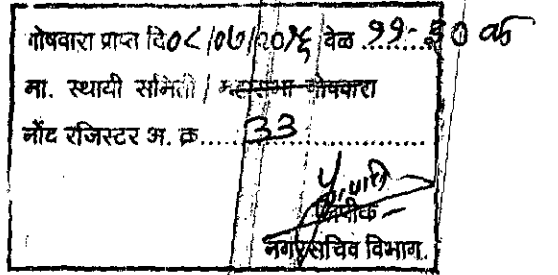 गोषवारा प्राप्त दि०८/०७/२०१६ वेळ ११-३० वा
मा. स्थायी समिती / महासभा गोषवारा
नोंद रजिस्टर अ. क्र.....33..............
लिपीक
नगरसचिव विभाग.